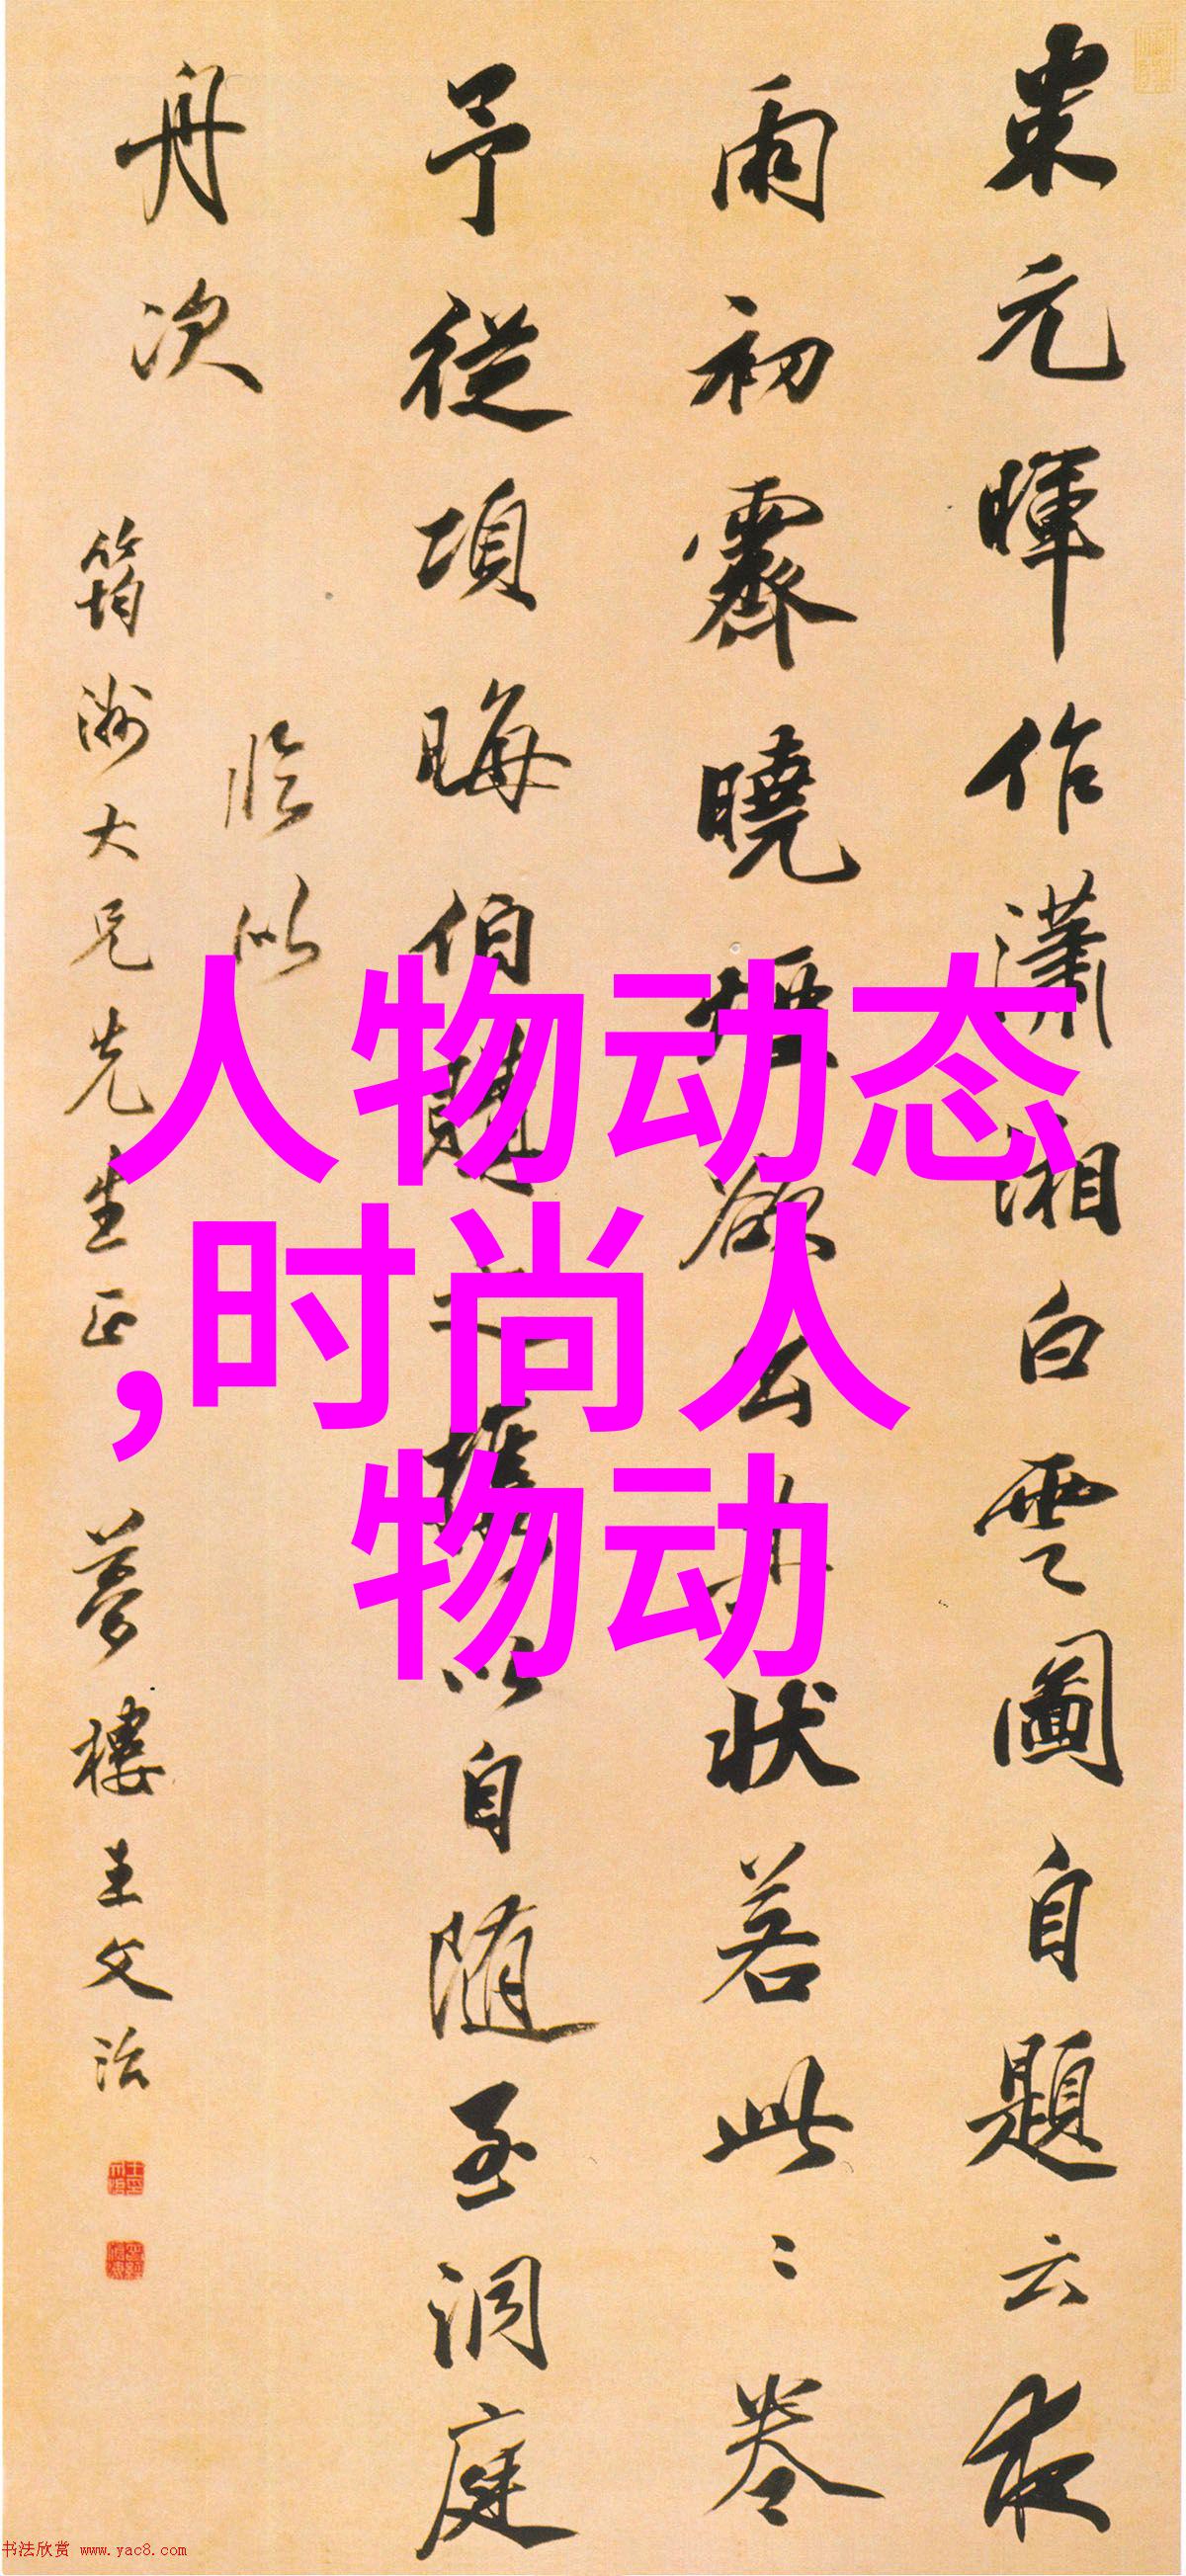 米元暉作瀟湘白雲圖自題云夜
雨初霽曉煙欲出其狀若此此卷
予從項晦伯購之攜以自随至洞庭
舟次
臨似
筠洲大兄先生正 夢樓王文治
人物动态
,时尚人
物动
书法欣赏 www.yac8.com